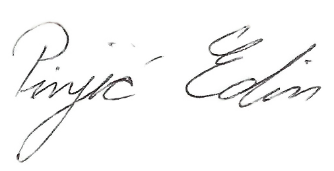 Pinjić Edin